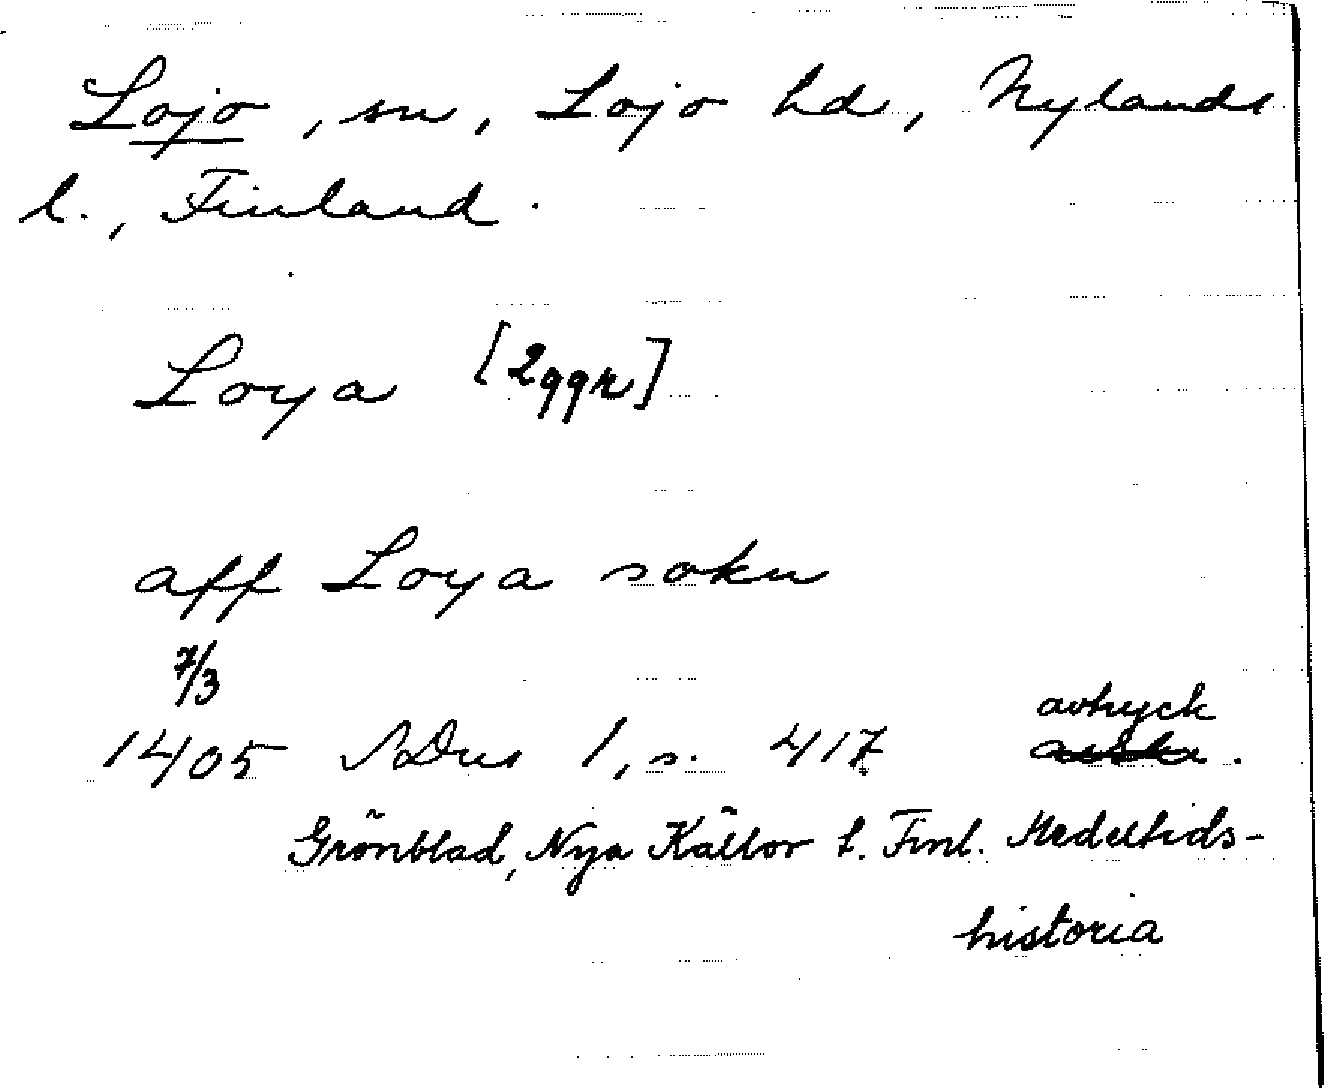 Lojo, sn, Lojo hd, Nylands
l., Finland.
Loya [2ggr]
aff Loya sokn
7/3
1405 SDns 1, s. 417 avtryck
Grönblad, Nya Källor t. Finl. Medeltids-
historia